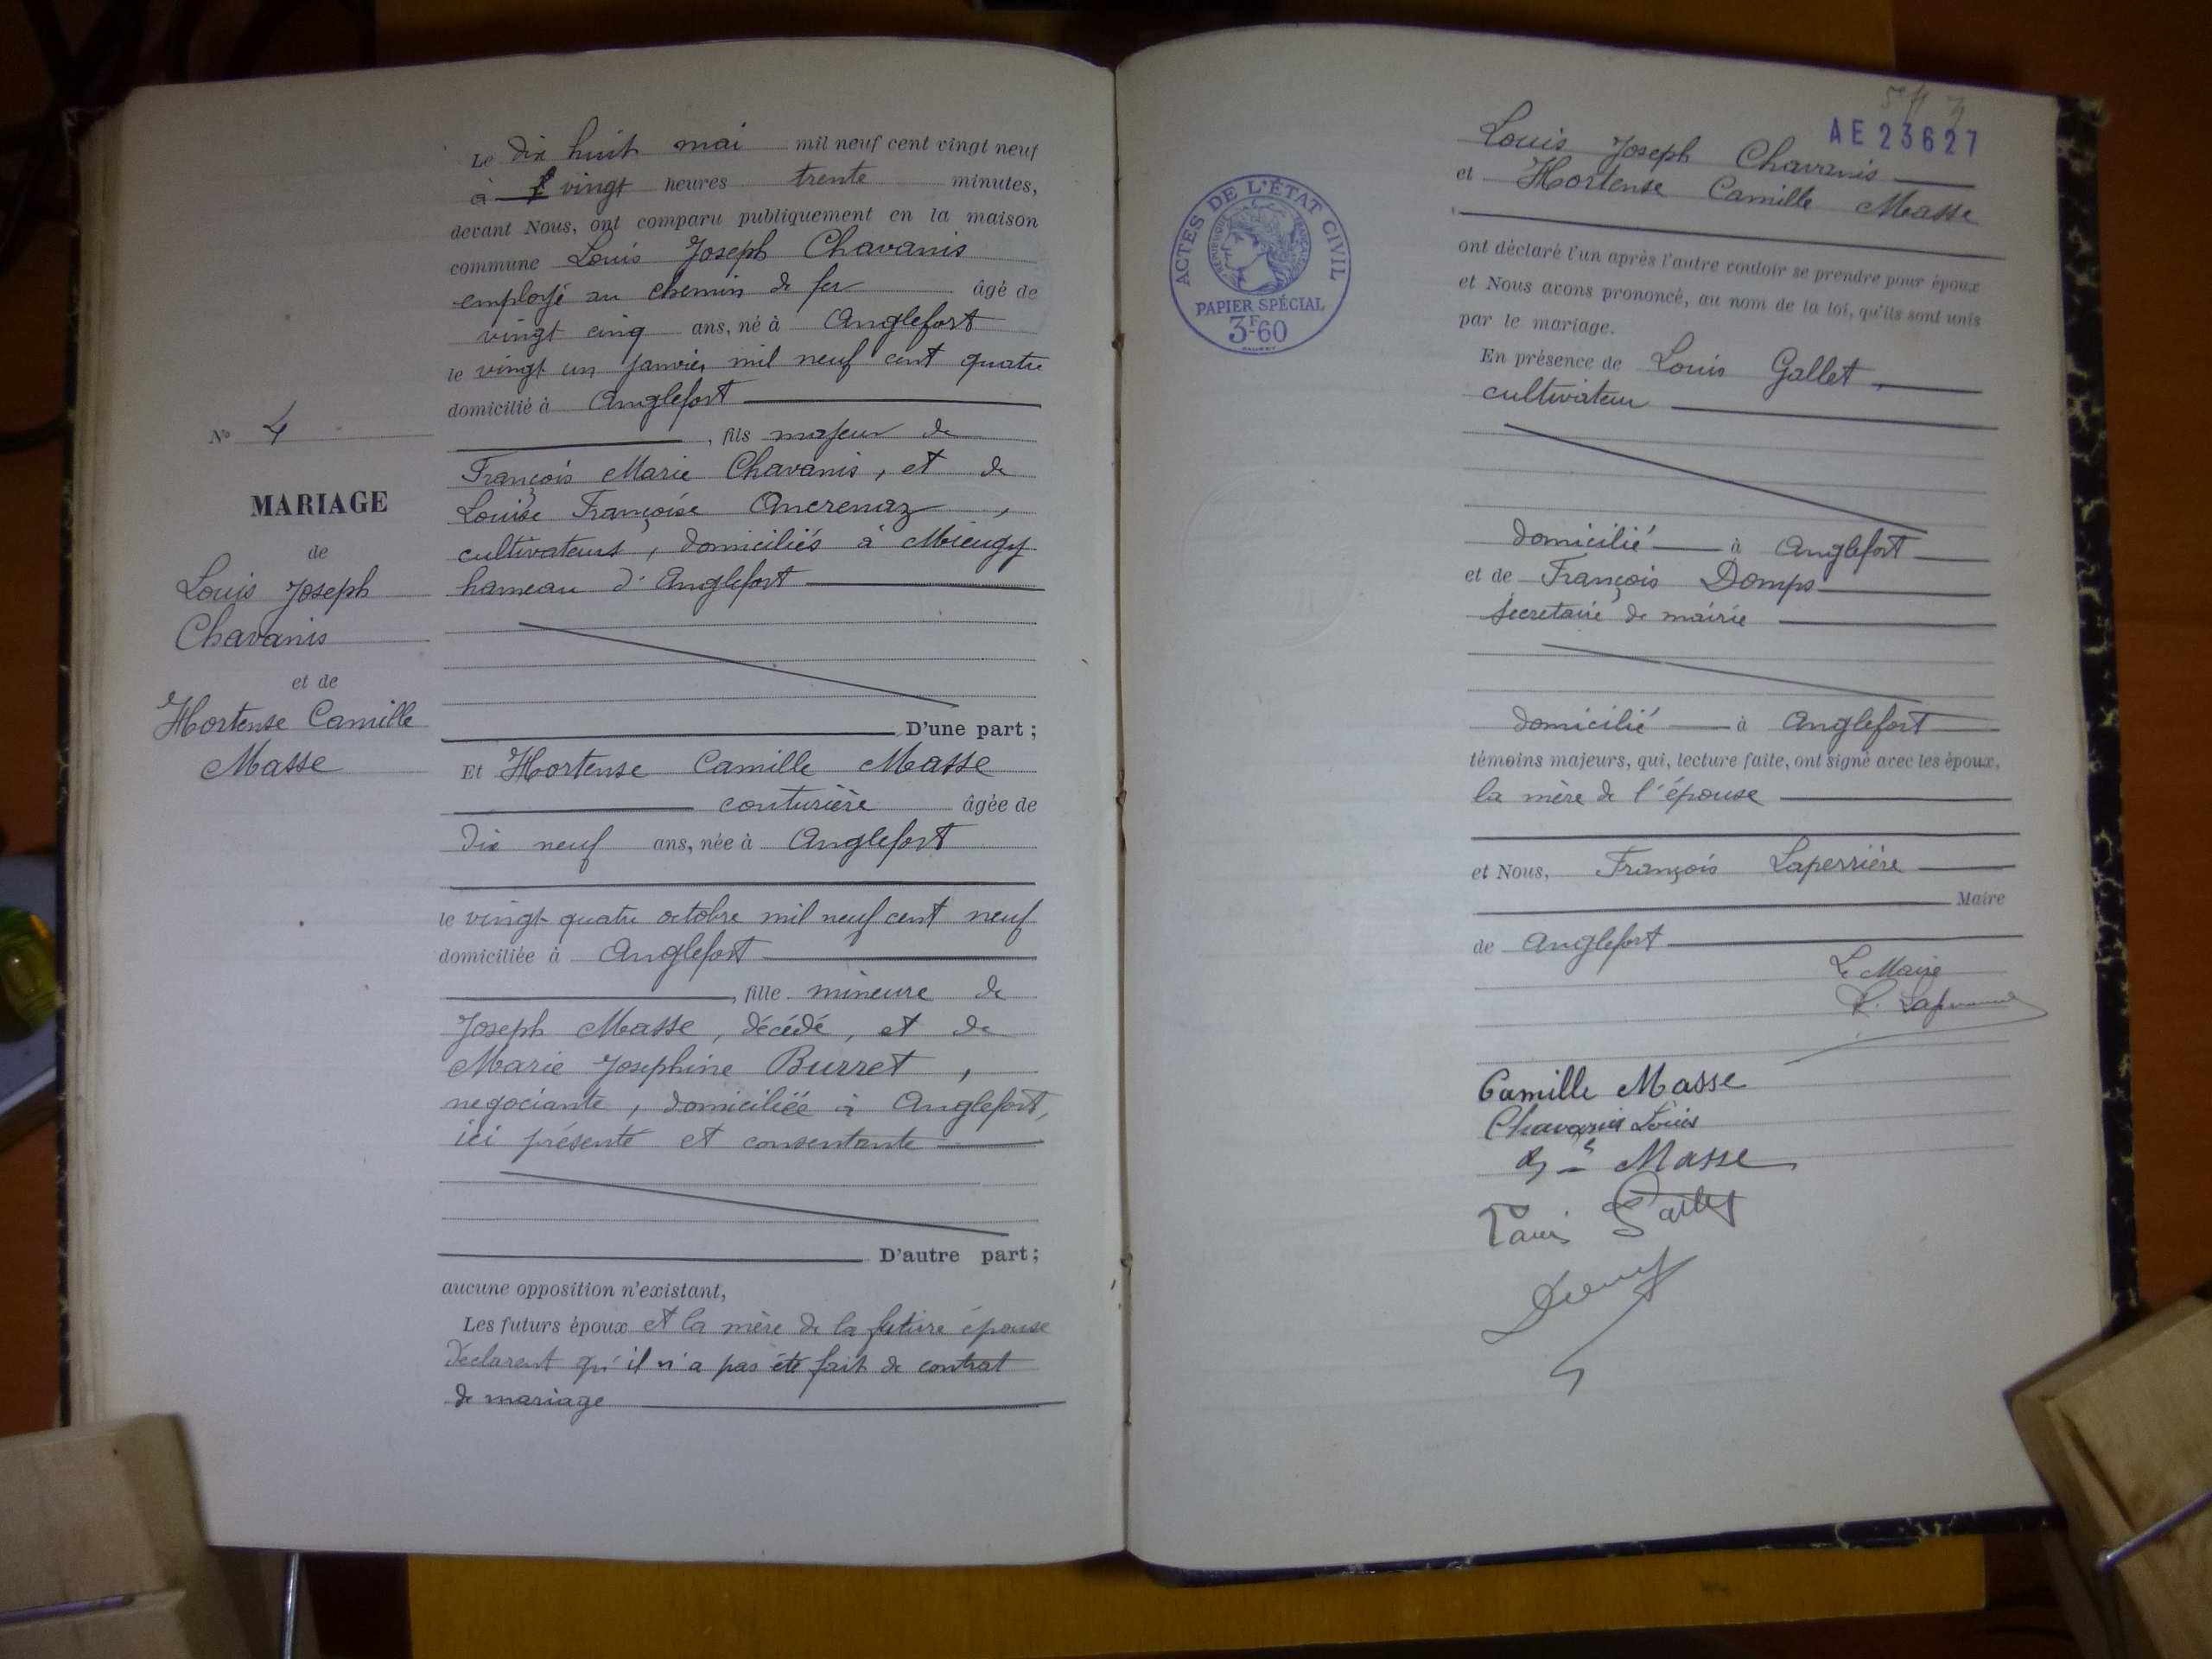 Le dix huit mai mil neuf cent vingt neuf
à vingt heures trente minutes,
devant Nous, ont comparu publiquement en la maison
commune Louis Joseph Chavanis
employé au chemin de fer âgé de
vingt cinq ans, né à Anglefort
le vingt un janvier mil neuf cent quatre
domicilié à Anglefort
, fils majeur de
François Marie Chavanis, et de
Louise Françoise Ancrenaz,
cultivateurs, domiciliés à Mieugy
hameau d'Anglefort
D'une part;
Et Hortense Camille Masse
couturière âgée de
dix neuf ans, née à Anglefort
le vingt quatre octobre mil neuf cent neuf
domiciliée à Anglefort
, fille mineure de
Joseph Masse, décédé, et de
Marie Josephine Burret,
negociante, domiciliée à Anglefort,
ici présente et consentante
D'autre part;
aucune opposition n'existant,
Les futurs époux et la mère de la future épouse
déclarent qu'il n'a pas été fait de contrat
de mariage
N° 4
MARIAGE
de
Louis Joseph
Chavanis
et de
Hortense Camille
Masse
AE 23627
ACTES DE L'ÉTAT CIVIL
RÉPUBLIQUE FRANÇAISE
PAPIER SPÉCIAL
3F-60
Louis Joseph Chavanis
et Hortense Camille Masse
ont déclaré l'un après l'autre vouloir se prendre pour époux
et Nous avons prononcé, au nom de la loi, qu'ils sont unis
par le mariage.
En présence de Louis Gallet,
cultivateur
domicilié à Anglefort
et de François Domps
secretaire de mairie
domicilié à Anglefort
témoins majeurs, qui, lecture faite, ont signé avec les époux,
la mère de l'épouse
et Nous, François Laperrière
Maire
de Anglefort
Le Maire
Camille Masse
Chavanis Louis
Masse